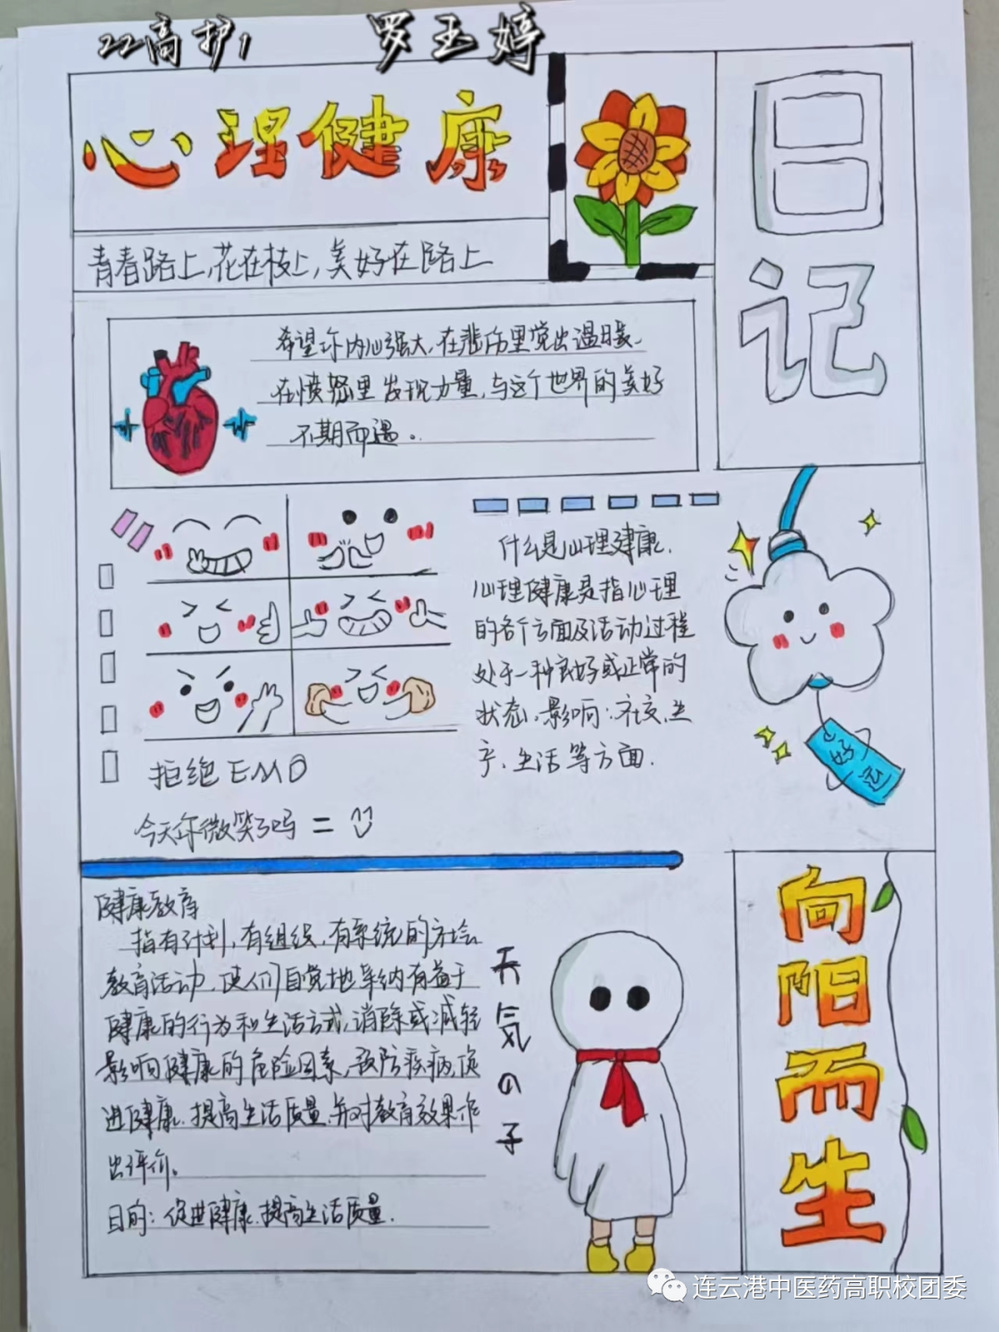 22高护1 罗玉婷
心理健康
日记
青春路上,花在枝上,美好在路上
希望你内心强大,在悲伤里觉出温暖
在愤怒里发现力量,与这个世界的美好
不期而遇。
什么是心理健康.
心理健康是指心理
的各个方面及活动过程
处于一种良好或正常的
状态。影响:社交,生
产、生活等方面.
好运
拒绝EMO
今天你微笑了吗 =
健康教育
指有计划,有组织,有系统的社会
教育活动,使人们自觉地采纳有益于
健康的行为和生活方式,消除或减轻
影响健康的危险因素,预防疾病,促
进健康.提高生活质量,并对教育效果作
出评价。
目的:促进健康.提高生活质量.
天気の子
向阳而生
连云港中医药高职校团委